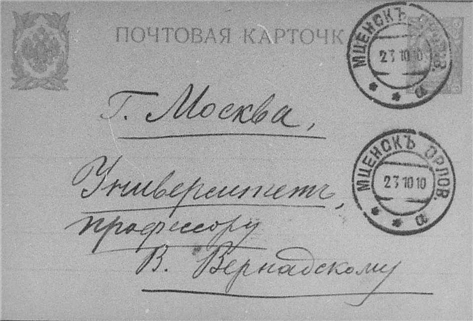 ПОЧТОВАЯ КАРТОЧК
МЦЕНСКЪ ОРЛОВ.
23 10 10
а
Г. Москва,
МЦЕНСКЪ ОРЛОВ.
23 10 10
а
Университетъ,
профессору
В. Вернадскому